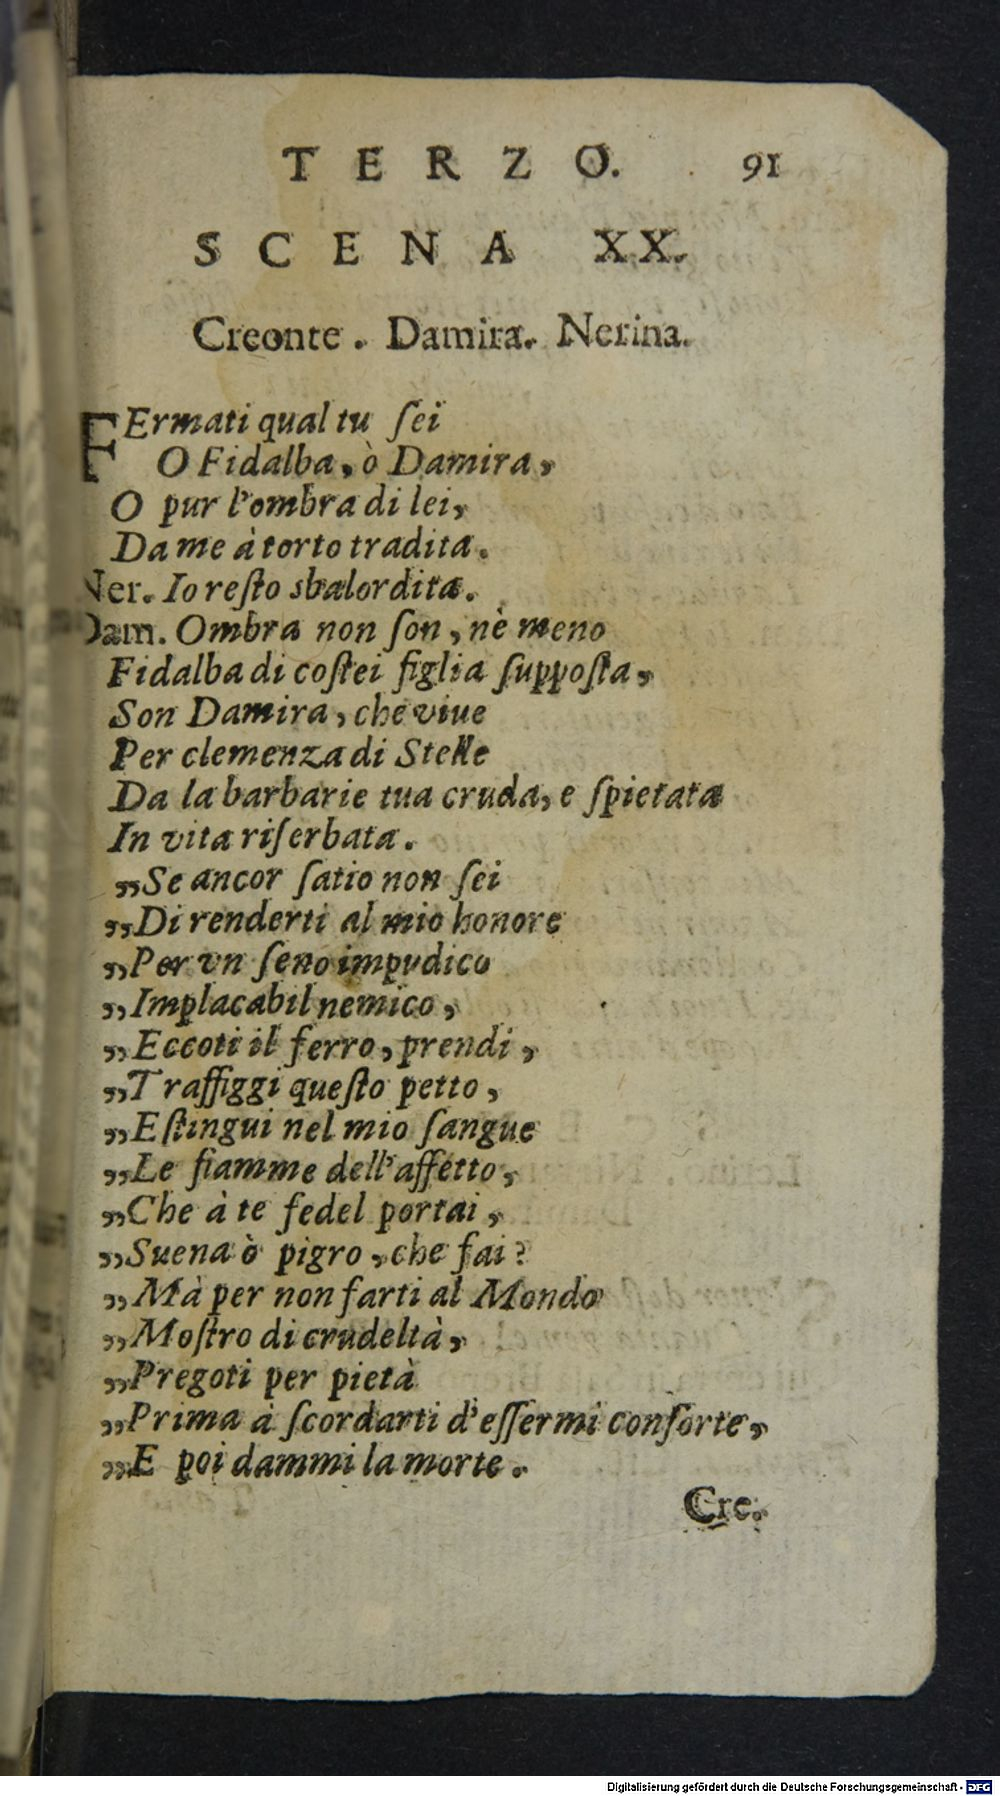 TERZO. 91
SCENA XX.
Creonte. Damira. Nerina.
FErmati qual tu ſei
O Fidalba, ò Damira,
O pur l'ombra di lei,
Da me à torto tradita.
Ner. Io reſto sbalordita.
Dam. Ombra non ſon, nè meno
Fidalba di coſtei figlia ſuppoſta,
Son Damira, che viue
Per clemenza di Stelle
Da la barbarie tua cruda, e ſpietata
In vita riſerbata.
„Se ancor ſatio non ſei
„Di renderti al mio honore
„Per vn ſeno impudico
„Implacabil nemico,
„Eccoti il ferro, prendi,
„Traffiggi queſto petto,
„Eſtingui nel mio ſangue
„Le fiamme dell'affetto,
„Che à te fedel portai,
„Suena ò pigro, che fai?
„Mà per non farti al Mondo
„Moſtro di crudeltà,
„Pregoti per pietà
„Prima à ſcordarti d'eſſermi conſorte,
„E poi dammi la morte.
Cre.
Digitalisierung gefördert durch die Deutsche Forschungsgemeinschaft - DFG